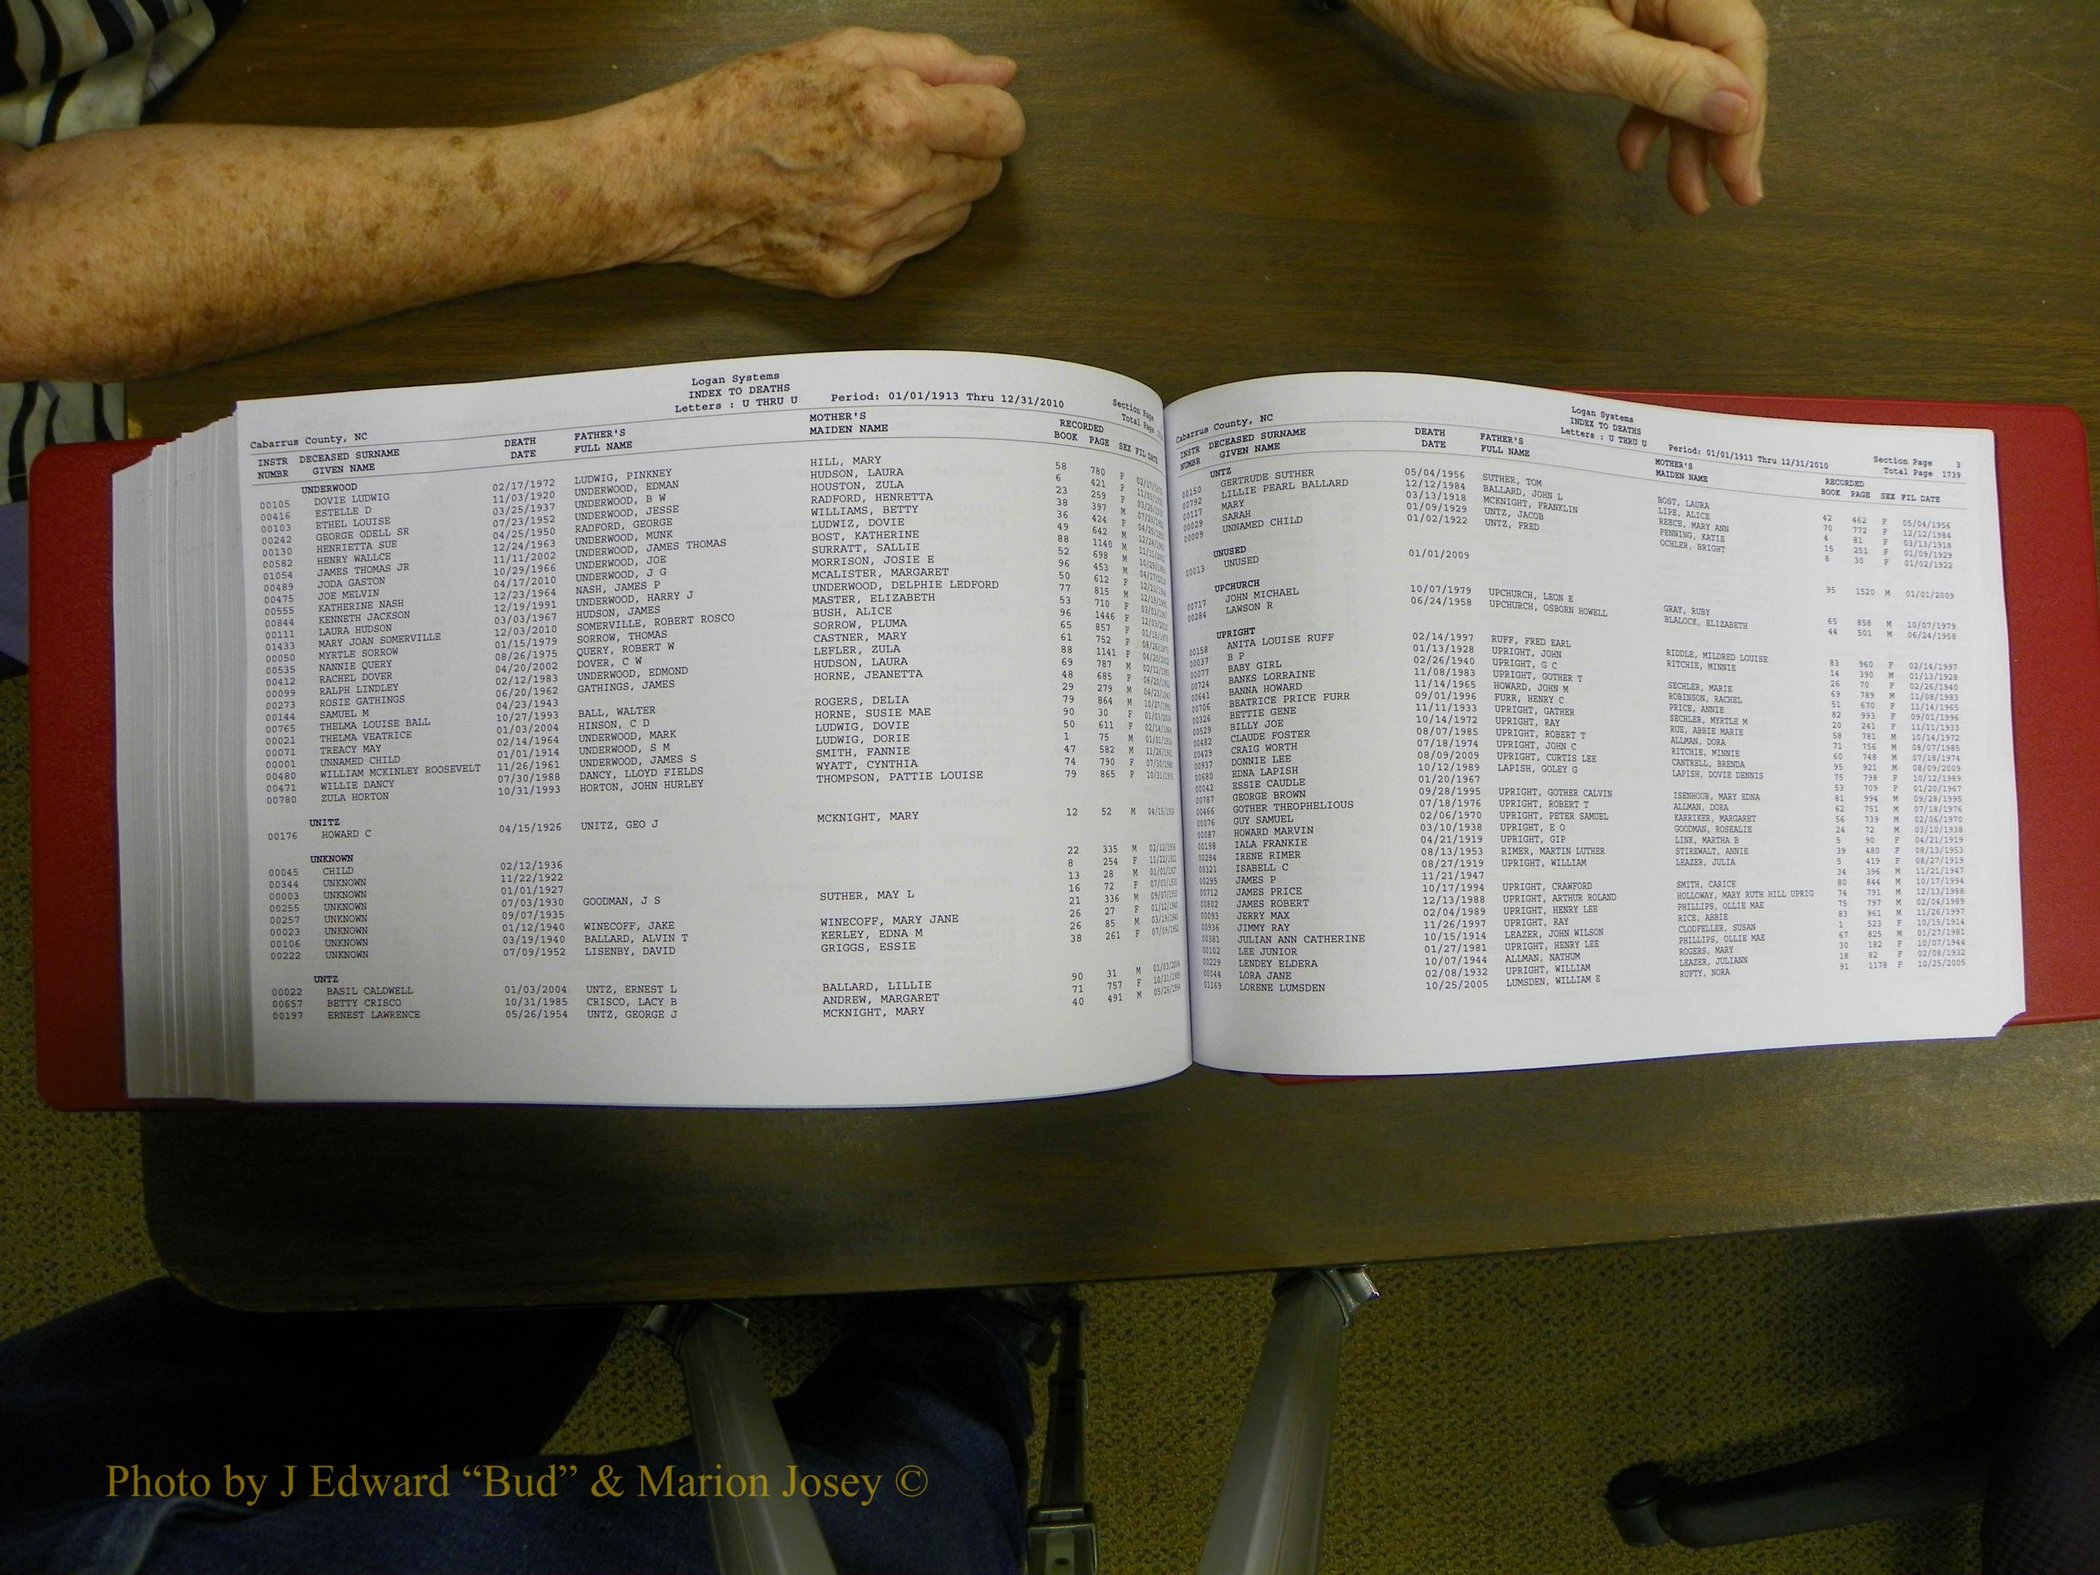 Logan Systems
INDEX TO DEATHS
Letters : U THRU U Period: 01/01/1913 Thru 12/31/2010
Section Page
Total Page
Cabarrus County, NC
INSTR DECEASED SURNAME DEATH FATHER'S MOTHER'S RECORDED
NUMBR GIVEN NAME DATE FULL NAME MAIDEN NAME BOOK PAGE SEX FIL DATE
UNDERWOOD
00105 DOVIE LUDWIG 02/17/1972 LUDWIG, PINKNEY HILL, MARY 58 780 F 02/17/1972
00416 ESTELLE D 11/03/1920 UNDERWOOD, EDMAN HUDSON, LAURA 6 421 F 11/03/1920
00103 ETHEL LOUISE 03/25/1937 UNDERWOOD, B W HOUSTON, ZULA 23 259 F 03/25/1937
00242 GEORGE ODELL SR 07/23/1952 UNDERWOOD, JESSE RADFORD, HENRETTA 38 397 M 07/23/1952
00130 HENRIETTA SUE 04/25/1950 RADFORD, GEORGE WILLIAMS, BETTY 36 424 F 04/25/1950
00582 HENRY WALLCE 12/24/1963 UNDERWOOD, MUNK LUDWIZ, DOVIE 49 642 M 12/24/1963
01054 JAMES THOMAS JR 11/11/2002 UNDERWOOD, JAMES THOMAS BOST, KATHERINE 88 1140 M 11/11/2002
00489 JODA GASTON 10/29/1966 UNDERWOOD, JOE SURRATT, SALLIE 52 698 M 10/29/1966
00475 JOE MELVIN 04/17/2010 UNDERWOOD, J G MORRISON, JOSIE E 96 453 M 04/17/2010
00555 KATHERINE NASH 12/23/1964 NASH, JAMES P MCALISTER, MARGARET 50 612 F 12/23/1964
00844 KENNETH JACKSON 12/19/1991 UNDERWOOD, HARRY J UNDERWOOD, DELPHIE LEDFORD 77 815 M 12/19/1991
00111 LAURA HUDSON 03/03/1967 HUDSON, JAMES MASTER, ELIZABETH 53 710 F 03/03/1967
01433 MARY JOAN SOMERVILLE 12/03/2010 SOMERVILLE, ROBERT ROSCO BUSH, ALICE 96 1446 F 12/03/2010
00050 MYRTLE SORROW 01/15/1979 SORROW, THOMAS SORROW, PLUMA 65 857 F 01/15/1979
00535 NANNIE QUERY 08/26/1975 QUERY, ROBERT W CASTNER, MARY 61 752 F 08/26/1975
00412 RACHEL DOVER 04/20/2002 DOVER, C W LEFLER, ZULA 88 1141 F 04/20/2002
00099 RALPH LINDLEY 02/12/1983 UNDERWOOD, EDMOND HUDSON, LAURA 69 787 M 02/12/1983
00273 ROSIE GATHINGS 06/20/1962 GATHINGS, JAMES HORNE, JEANETTA 48 685 F 06/20/1962
00144 SAMUEL M 04/23/1943 29 279 M 04/23/1943
00765 THELMA LOUISE BALL 10/27/1993 BALL, WALTER ROGERS, DELIA 79 864 M 10/27/1993
00021 THELMA VEATRICE 01/03/2004 HINSON, C D HORNE, SUSIE MAE 90 30 F 01/03/2004
00071 TREACY MAY 02/14/1964 UNDERWOOD, MARK LUDWIG, DOVIE 50 611 F 02/14/1964
00001 UNNAMED CHILD 01/01/1914 UNDERWOOD, S M LUDWIG, DORIE 1 75 M 01/01/1914
00480 WILLIAM MCKINLEY ROOSEVELT 11/26/1961 UNDERWOOD, JAMES S SMITH, FANNIE 47 582 M 11/26/1961
00471 WILLIE DANCY 07/30/1988 DANCY, LLOYD FIELDS WYATT, CYNTHIA 74 790 F 07/30/1988
00780 ZULA HORTON 10/31/1993 HORTON, JOHN HURLEY THOMPSON, PATTIE LOUISE 79 865 F 10/31/1993
UNITZ
00176 HOWARD C 04/15/1926 UNITZ, GEO J MCKNIGHT, MARY 12 52 M 04/15/1926
UNKNOWN
00045 CHILD 02/12/1936 22 335 M 02/12/1936
00344 UNKNOWN 11/22/1922 8 254 F 11/22/1922
00003 UNKNOWN 01/01/1927 13 28 M 01/01/1927
00255 UNKNOWN 07/03/1930 GOODMAN, J S SUTHER, MAY L 16 72 F 07/03/1930
00257 UNKNOWN 09/07/1935 21 336 M 09/07/1935
00023 UNKNOWN 01/12/1940 WINECOFF, JAKE WINECOFF, MARY JANE 26 27 F 01/12/1940
00106 UNKNOWN 03/19/1940 BALLARD, ALVIN T KERLEY, EDNA M 26 85 M 03/19/1940
00222 UNKNOWN 07/09/1952 LISENBY, DAVID GRIGGS, ESSIE 38 261 F 07/09/1952
UNTZ
00022 BASIL CALDWELL 01/03/2004 UNTZ, ERNEST L BALLARD, LILLIE 90 31 M 01/03/2004
00657 BETTY CRISCO 10/31/1985 CRISCO, LACY B ANDREW, MARGARET 71 757 F 10/31/1985
00197 ERNEST LAWRENCE 05/26/1954 UNTZ, GEORGE J MCKNIGHT, MARY 40 491 M 05/26/1954
Logan Systems
INDEX TO DEATHS
Letters : U THRU U Period: 01/01/1913 Thru 12/31/2010
Section Page 3
Total Page 1739
Cabarrus County, NC
INSTR DECEASED SURNAME DEATH FATHER'S MOTHER'S RECORDED
NUMBR GIVEN NAME DATE FULL NAME MAIDEN NAME BOOK PAGE SEX FIL DATE
UNTZ
00150 GERTRUDE SUTHER 05/04/1956 SUTHER, TOM BOST, LAURA 42 462 F 05/04/1956
00792 LILLIE PEARL BALLARD 12/12/1984 BALLARD, JOHN L LIPE, ALICE 70 772 F 12/12/1984
00117 MARY 03/13/1918 MCKNIGHT, FRANKLIN REECE, MARY ANN 4 81 F 03/13/1918
00029 SARAH 01/09/1929 UNTZ, JACOB FENNING, KATIE 15 251 F 01/09/1929
00009 UNNAMED CHILD 01/02/1922 UNTZ, FRED OCHLER, BRIGHT 8 30 F 01/02/1922
UNUSED
00013 UNUSED 01/01/2009 95 1520 M 01/01/2009
UPCHURCH
00717 JOHN MICHAEL 10/07/1979 UPCHURCH, LEON E GRAY, RUBY 65 858 M 10/07/1979
00284 LAWSON R 06/24/1958 UPCHURCH, OSBORN HOWELL BLALOCK, ELIZABETH 44 501 M 06/24/1958
UPRIGHT
00158 ANITA LOUISE RUFF 02/14/1997 RUFF, FRED EARL RIDDLE, MILDRED LOUISE 83 960 F 02/14/1997
00037 B P 01/13/1928 UPRIGHT, JOHN RITCHIE, MINNIE 14 390 M 01/13/1928
00077 BABY GIRL 02/26/1940 UPRIGHT, G C 26 70 F 02/26/1940
00724 BANKS LORRAINE 11/08/1983 UPRIGHT, GOTHER T SECHLER, MARIE 69 789 M 11/08/1983
00641 BANNA HOWARD 11/14/1965 HOWARD, JOHN M ROBINSON, RACHEL 51 670 F 11/14/1965
00706 BEATRICE PRICE FURR 09/01/1996 FURR, HENRY C PRICE, ANNIE 82 993 F 09/01/1996
00326 BETTIE GENE 11/11/1933 UPRIGHT, GATHER SECHLER, MYRTLE M 20 241 F 11/11/1933
00529 BILLY JOE 10/14/1972 UPRIGHT, RAY RUE, ABBIE MARIE 58 781 M 10/14/1972
00482 CLAUDE FOSTER 08/07/1985 UPRIGHT, ROBERT T ALLMAN, DORA 71 756 M 08/07/1985
00429 CRAIG WORTH 07/18/1974 UPRIGHT, JOHN C RITCHIE, MINNIE 60 748 M 07/18/1974
00937 DONNIE LEE 08/09/2009 UPRIGHT, CURTIS LEE CANTRELL, BRENDA 95 921 M 08/09/2009
00680 EDNA LAPISH 10/12/1989 LAPISH, GOLEY G LAPISH, DOVIE DENNIS 75 798 F 10/12/1989
00042 ESSIE CAUDLE 01/20/1967 53 709 F 01/20/1967
00787 GEORGE BROWN 09/28/1995 UPRIGHT, GOTHER CALVIN ISENHOUR, MARY EDNA 81 994 M 09/28/1995
00466 GOTHER THEOPHELIOUS 07/18/1976 UPRIGHT, ROBERT T ALLMAN, DORA 62 751 M 07/18/1976
00076 GUY SAMUEL 02/06/1970 UPRIGHT, PETER SAMUEL KARRIKER, MARGARET 56 739 M 02/06/1970
00087 HOWARD MARVIN 03/10/1938 UPRIGHT, E O GOODMAN, ROSEALIE 24 72 M 03/10/1938
00198 IALA FRANKIE 04/21/1919 UPRIGHT, GIP LINK, MARTHA B 5 90 F 04/21/1919
00284 IRENE RIMER 08/13/1953 RIMER, MARTIN LUTHER STIREWALT, ANNIE 39 480 F 08/13/1953
00321 ISABELL C 08/27/1919 UPRIGHT, WILLIAM LEAZER, JULIA 5 419 F 08/27/1919
00295 JAMES P 11/21/1947 34 396 M 11/21/1947
00712 JAMES PRICE 10/17/1994 UPRIGHT, CRAWFORD SMITH, CARICE 80 844 M 10/17/1994
00802 JAMES ROBERT 12/13/1988 UPRIGHT, ARTHUR ROLAND HOLLOWAY, MARY RUTH HILL UPRIG 74 791 M 12/13/1988
00093 JERRY MAX 02/04/1989 UPRIGHT, HENRY LEE PHILLIPS, OLLIE MAE 75 797 M 02/04/1989
00936 JIMMY RAY 11/26/1997 UPRIGHT, RAY RICE, ABBIE 83 961 M 11/26/1997
00381 JULIAN ANN CATHERINE 10/15/1914 LEAZER, JOHN WILSON CLODFELLER, SUSAN 1 523 F 10/15/1914
00102 LEE JUNIOR 01/27/1981 UPRIGHT, HENRY LEE PHILLIPS, OLLIE MAE 67 825 M 01/27/1981
00229 LENDEY ELDERA 10/07/1944 ALLMAN, NATHUM ROGERS, MARY 30 182 F 10/07/1944
00044 LORA JANE 02/08/1932 UPRIGHT, WILLIAM LEAZER, JULIANN 18 82 F 02/08/1932
01169 LORENE LUMSDEN 10/25/2005 LUMSDEN, WILLIAM E RUFTY, NORA 91 1178 F 10/25/2005
Photo by J Edward “Bud” & Marion Josey ©